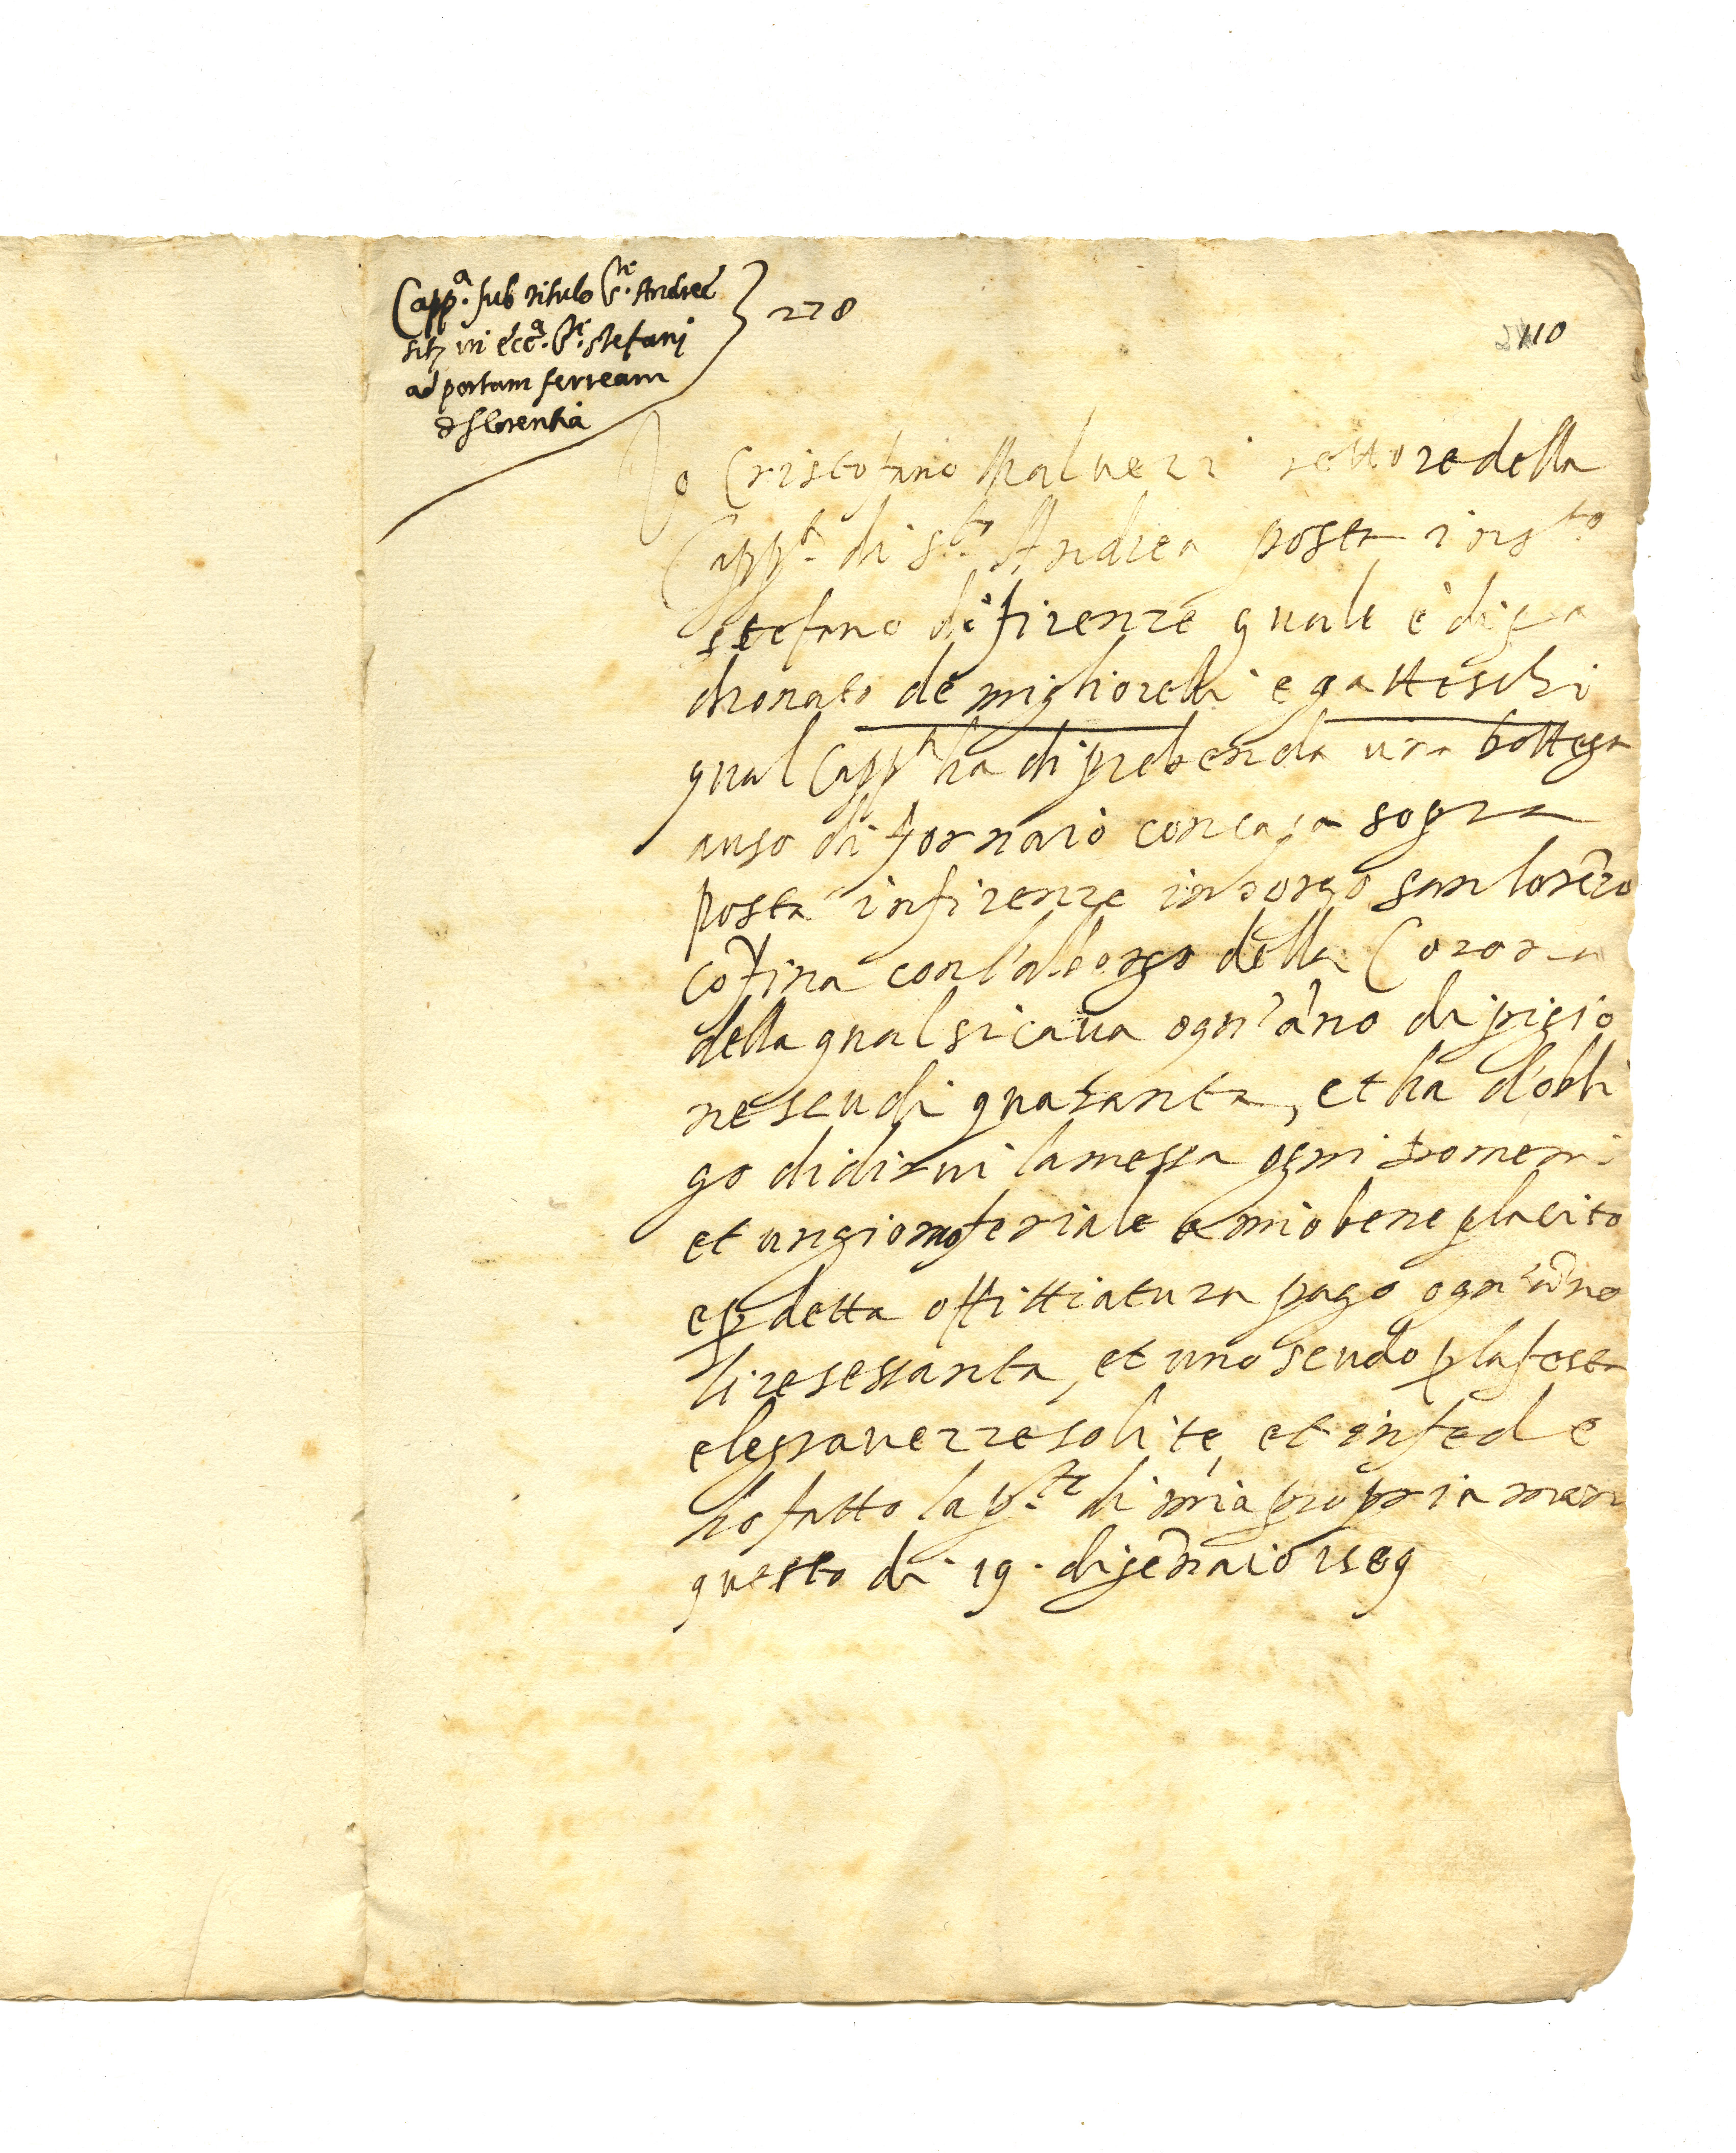 Capp.a sub titulo S.ti Andreæ
sitȝ in ecc.a S.ti Stefani
ad portam ferream
de florentia
228
110
Io Cristofano Malvezi rettore della
Capp.a di s.to Andrea posta in s.to
stefano di firenze quale è di pa
dronato de migliorelli e gatteschi
qual Capp.a ha di prebenda una bottega
a uso di fornaio con casa sopra
posta in firenze in borgo san lorēzo
cōfina con l'albergo della Corona
della qual si cava ogn'āno di pigio
ne scudi quaranta, et ha d'obli
go di dirvi la messa ogni
et un giorno feriale a mio bene placito
e p detta offittiatura pago ogn'āno
lire sessanta, et uno scudo p la festa
e le gravezze solite, et in fede
ho fatto la p.te di mia propria man
questo di 19. di gēnaio